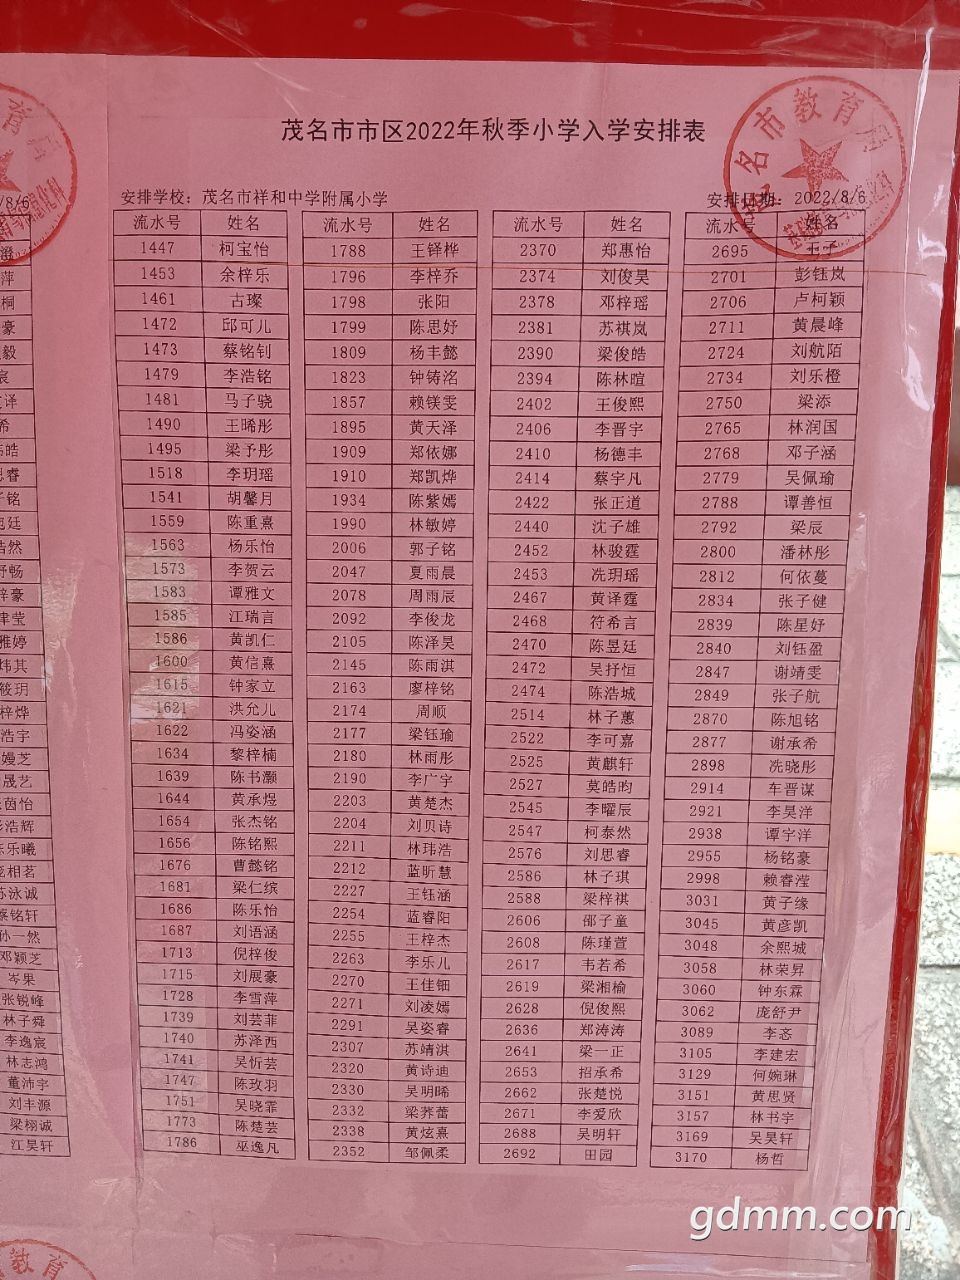 茂名市市区2022年秋季小学入学安排表
安排学校：茂名市祥和中学附属小学 安排日期：2022/8/6
流水号 姓名 流水号 姓名 流水号 姓名 流水号 姓名
1447 柯宝怡 1788 王铎桦 2370 郑惠怡 2695 王子
1453 余梓乐 1796 李梓乔 2374 刘俊昊 2701 彭钰岚
1461 古璨 1798 张阳 2378 邓梓瑶 2706 卢柯颖
1472 邱可儿 1799 陈思妤 2381 苏祺岚 2711 黄晨峰
1473 蔡铭钊 1809 杨丰懿 2390 梁俊皓 2724 刘航陌
1479 李浩铭 1823 钟铸洺 2394 陈林暄 2734 刘乐橙
1481 马子骁 1857 赖镁雯 2402 王俊熙 2750 梁添
1490 王晞彤 1895 黄天泽 2406 李晋宇 2765 林润国
1495 梁予彤 1909 郑依娜 2410 杨德丰 2768 邓子涵
1518 李玥瑶 1910 郑凯烨 2414 蔡宇凡 2779 吴佩瑜
1541 胡馨月 1934 陈紫嫣 2422 张正道 2788 谭善恒
1559 陈重熹 1990 林敏婷 2440 沈子雄 2792 梁辰
1563 杨乐怡 2006 郭子铭 2452 林骏霆 2800 潘林彤
1573 李贺云 2047 夏雨晨 2453 冼玥瑶 2812 何依蔓
1583 谭雅文 2078 周雨辰 2467 黄译霆 2834 张子健
1585 江瑞言 2092 李俊龙 2468 符希言 2839 陈星妤
1586 黄凯仁 2105 陈泽昊 2470 陈昱廷 2840 刘钰盈
1600 黄信熹 2145 陈雨淇 2472 吴抒恒 2847 谢靖雯
1615 钟家立 2163 廖梓铭 2474 陈浩城 2849 张子航
1621 洪允儿 2174 周顺 2514 林子蕙 2870 陈旭铭
1622 冯姿涵 2177 梁钰瑜 2522 李可嘉 2877 谢承希
1634 黎梓楠 2180 林雨彤 2525 黄麒轩 2898 冼晓彤
1639 陈书灏 2190 李广宇 2527 莫皓昀 2914 车晋谋
1644 黄承煜 2203 黄楚杰 2545 李曜辰 2921 李昊洋
1654 张杰铭 2204 刘贝诗 2547 柯泰然 2938 谭宇洋
1656 陈铭熙 2211 林玮浩 2576 刘思睿 2955 杨铭豪
1676 曹懿铭 2212 蓝昕慧 2586 林子琪 2998 赖睿滢
1681 梁仁缤 2227 王钰涵 2588 梁梓祺 3031 黄子缘
1686 陈乐怡 2254 蓝睿阳 2606 邵子童 3045 黄彦凯
1687 刘语涵 2255 王梓杰 2608 陈瑾萱 3048 余熙城
1713 倪梓俊 2263 李乐儿 2617 韦若希 3058 林荣昇
1715 刘展豪 2270 王佳钿 2619 梁湘榆 3060 钟东霖
1728 李雪萍 2271 刘凌嫣 2628 倪俊熙 3062 庞舒尹
1739 刘芸菲 2291 吴姿睿 2636 郑涛涛 3089 李忞
1740 苏泽西 2307 苏靖淇 2641 梁一正 3105 李建宏
1741 吴忻芸 2320 黄诗迪 2653 招承希 3129 何婉琳
1747 陈玫羽 2330 吴明晞 2662 张楚悦 3151 黄思贤
1751 吴晓霏 2332 梁荞蕾 2671 李爱欣 3157 林书宇
1773 陈楚芸 2338 黄炫熹 2688 吴明轩 3169 吴昊轩
1786 巫逸凡 2352 邹佩柔 2692 田园 3170 杨哲
gdmm.com